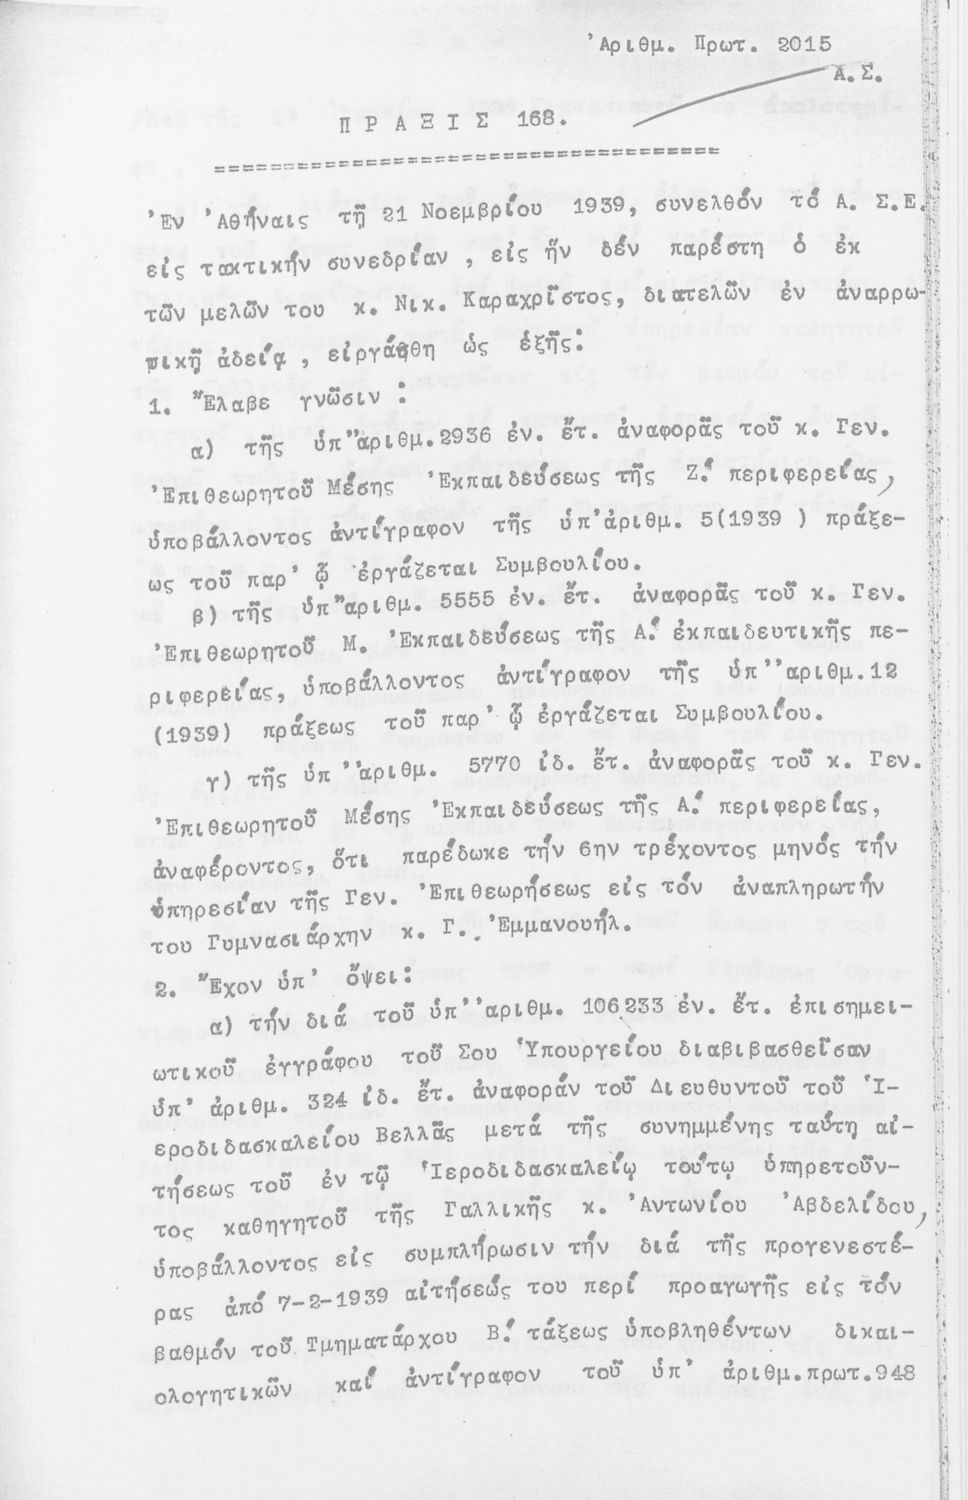 Ἀριθμ. Πρωτ. 2015
Α.Σ.
Π Ρ Α Ξ Ι Σ 168.
=====================================
Ἐν Ἀθήναις τῇ 21 Νοεμβρίου 1939, συνελθόν τό Α. Σ.Ε.
εἰς τακτικήν συνεδρίαν , εἰς ἥν δέν παρέστη ὁ ἐκ
τῶν μελῶν του κ. Νικ. Καραχρῖστος, διατελῶν ἐν ἀναρρω-
τικῇ ἀδείᾳ , εἰργάσθη ὡς ἑξῆς:
1. Ἔλαβε γνῶσιν :
α) τῆς ὑπ'ἀριθμ.2936 ἐν. ἔτ. ἀναφορᾶς τοῦ κ. Γεν.
Ἐπιθεωρητοῦ Μέσης Ἐκπαιδεύσεως τῆς Ζ΄. περιφερείας,
ὑποβάλλοντος ἀντίγραφον τῆς ὑπ'ἀριθμ. 5(1939 ) πράξε-
ως τοῦ παρ' ᾧ ἐργάζεται Συμβουλίου.
β) τῆς ὑπ'ἀριθμ. 5555 ἐν. ἔτ. ἀναφορᾶς τοῦ κ. Γεν.
Ἐπιθεωρητοῦ Μ. Ἐκπαιδεύσεως τῆς Α΄. ἐκπαιδευτικῆς πε-
ριφερείας, ὑποβάλλοντος ἀντίγραφον τῆς ὑπ''αριθμ.12
(1939) πράξεως τοῦ παρ' ᾧ ἐργάζεται Συμβουλίου.
γ) τῆς ὑπ ''αριθμ. 5770 ἰδ. ἔτ. ἀναφορᾶς τοῦ κ. Γεν.
Ἐπιθεωρητοῦ Μέσης Ἐκπαιδεύσεως τῆς Α΄. περιφερείας,
ἀναφέροντος, ὅτι παρέδωκε τήν 6ην τρέχοντος μηνός τήν
ὑπηρεσίαν τῆς Γεν. Ἐπιθεωρήσεως εἰς τόν ἀναπληρωτήν
του Γυμνασιάρχην κ. Γ. Ἐμμανουήλ.
2. Ἔχον ὑπ' ὄψει:
α) τήν διά τοῦ ὑπ''αριθμ. 106233 ἐν. ἔτ. ἐπισημει-
ωτικοῦ ἐγγράφου τοῦ Σου Ὑπουργείου διαβιβασθεῖσαν
ὑπ' ἀριθμ. 324 ἰδ. ἔτ. ἀναφοράν τοῦ Διευθυντοῦ τοῦ Ἱ-
εροδιδασκαλείου Βελλᾶς μετά τῆς συνημμένης ταύτῃ αἰ-
τήσεως τοῦ ἐν τῷ Ἱεροδιδασκαλείῳ τούτῳ ὑπηρετοῦν-
τος καθηγητοῦ τῆς Γαλλικῆς κ. Ἀντωνίου Ἀβδελίδου,
ὑποβάλλοντος εἰς συμπλήρωσιν τήν διά τῆς προγενεστέ-
ρας ἀπό 7-2-1939 αἰτήσεώς του περί προαγωγῆς εἰς τόν
βαθμόν τοῦ Τμηματάρχου Β΄. τάξεως ὑποβληθέντων δικαι-
ολογητικῶν καί ἀντίγραφον τοῦ ὑπ' ἀριθμ.πρωτ.948